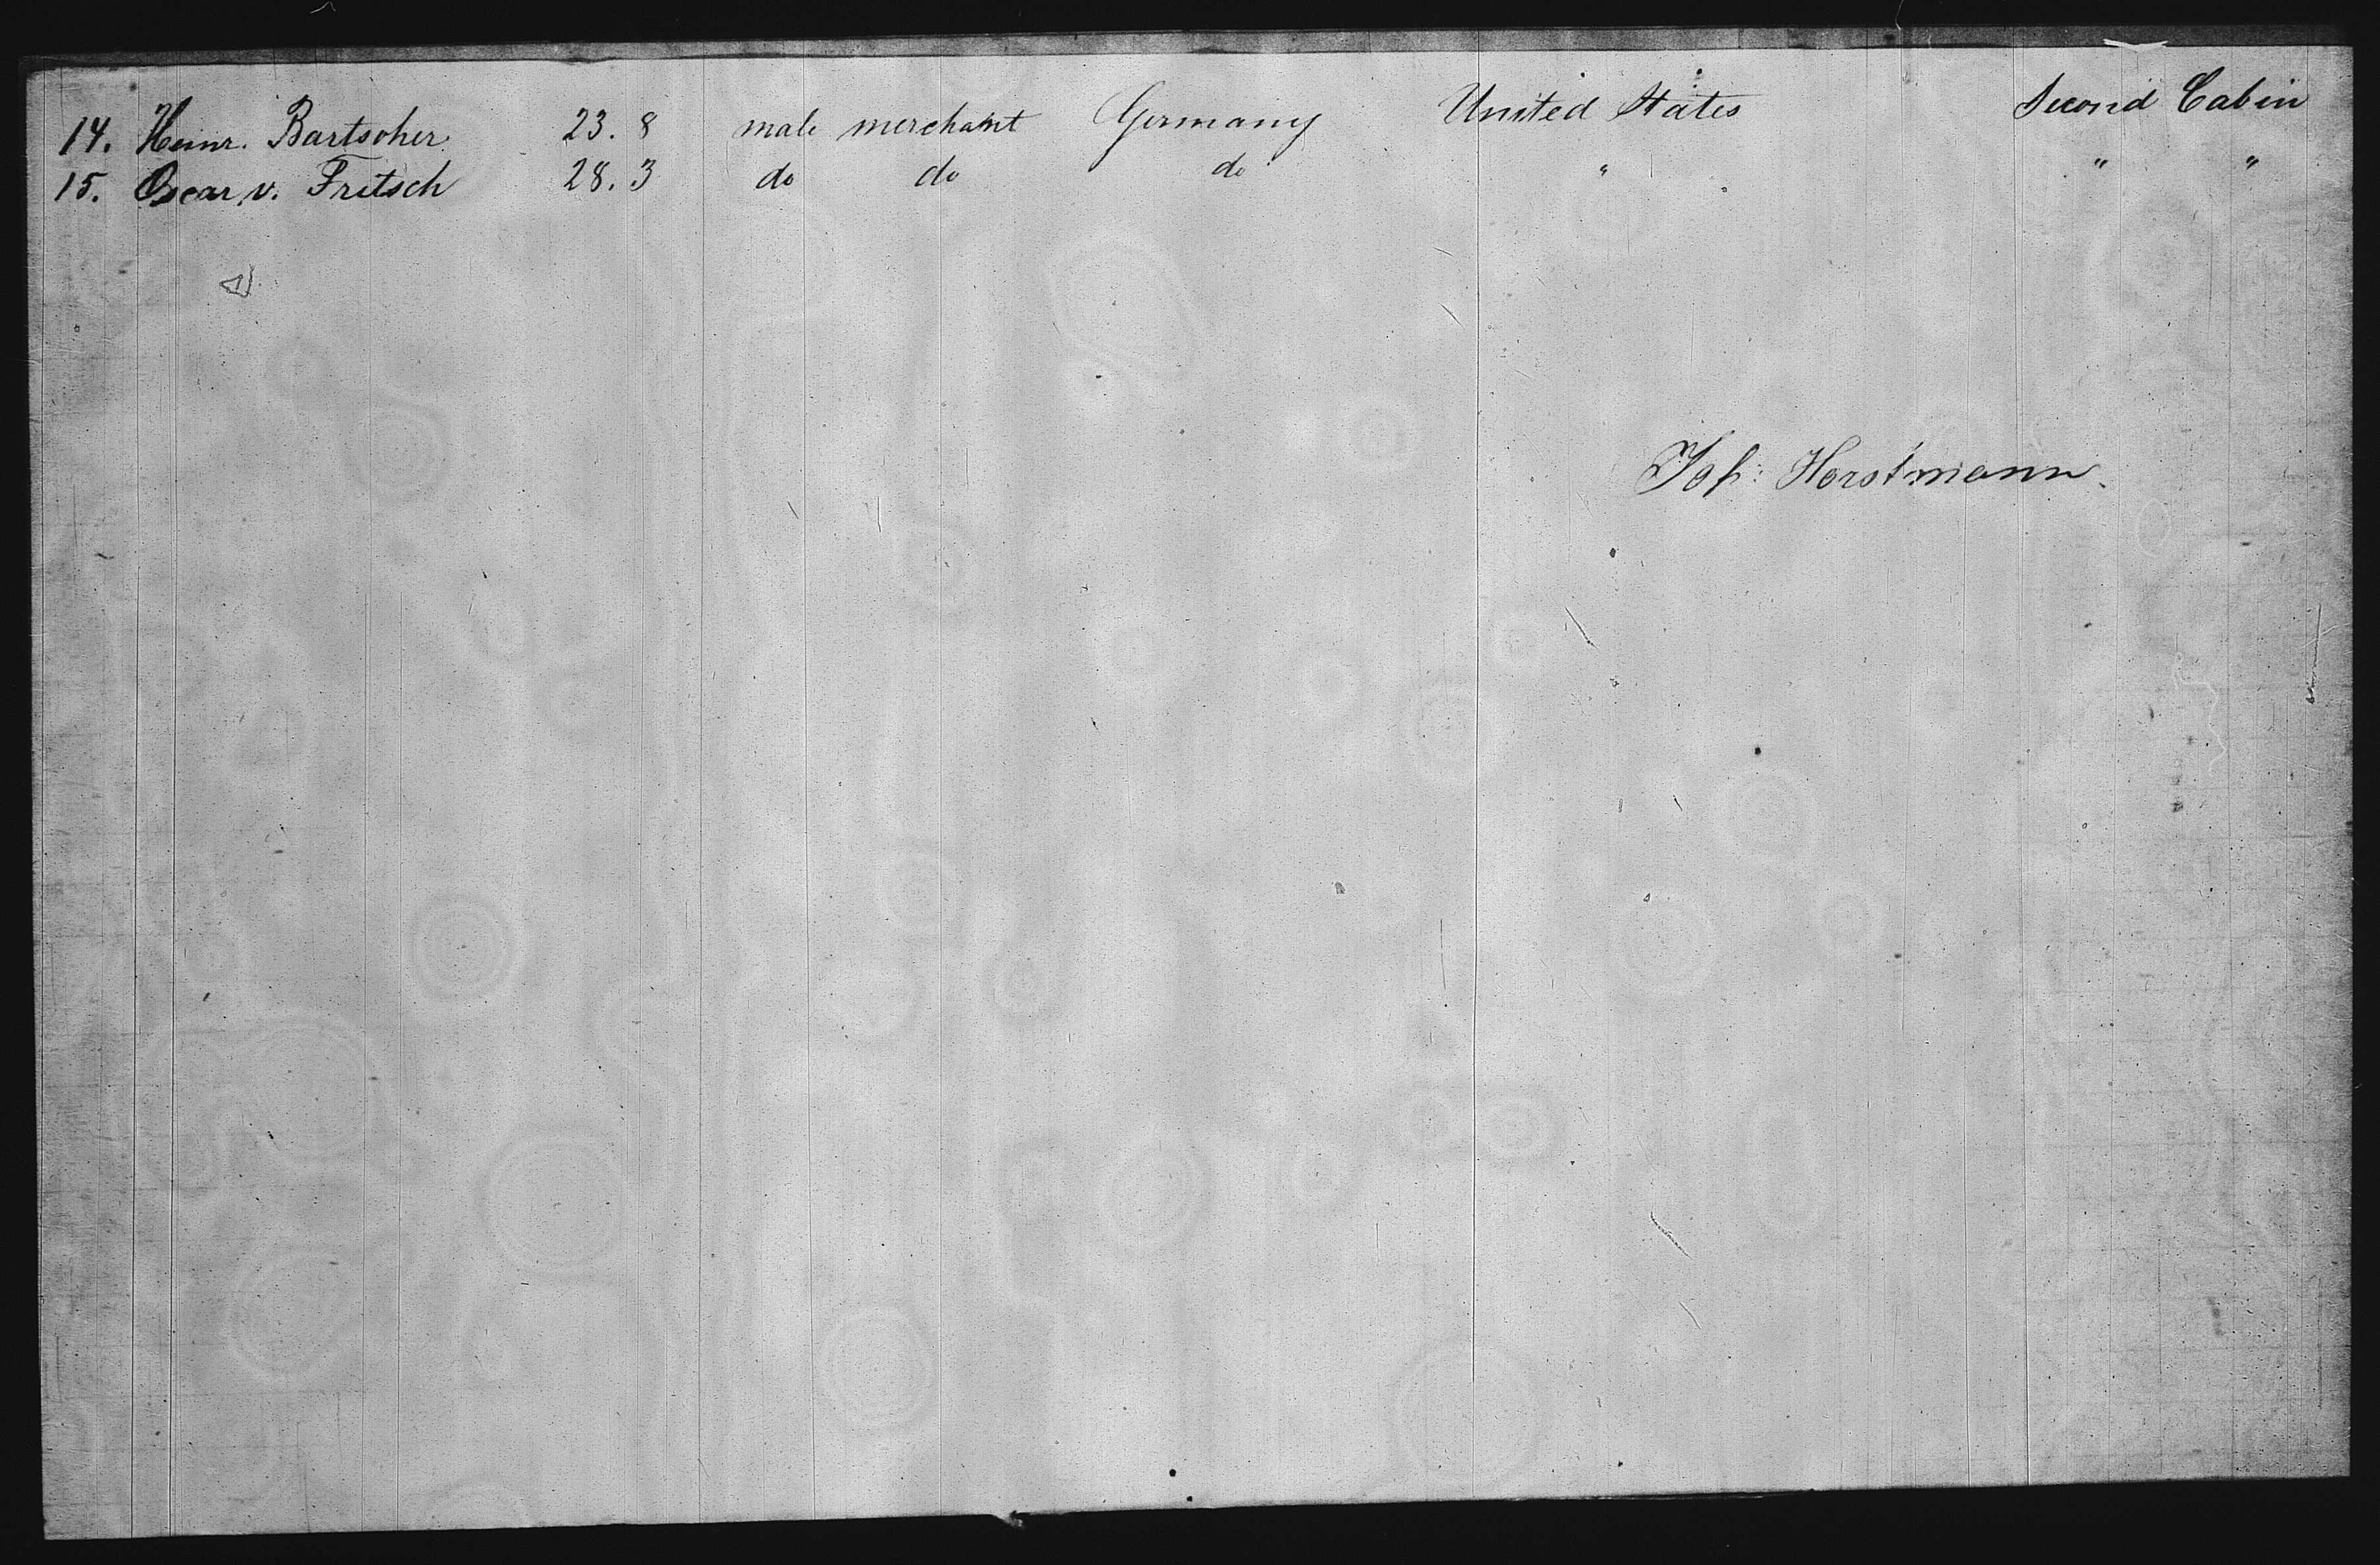 14. Heinr. Bartscher 23. 8 male merchant Germany United States Second Cabin
15. Oscar v. Fritsch 28. 3 do do do " " "
Joh: Horstmann.